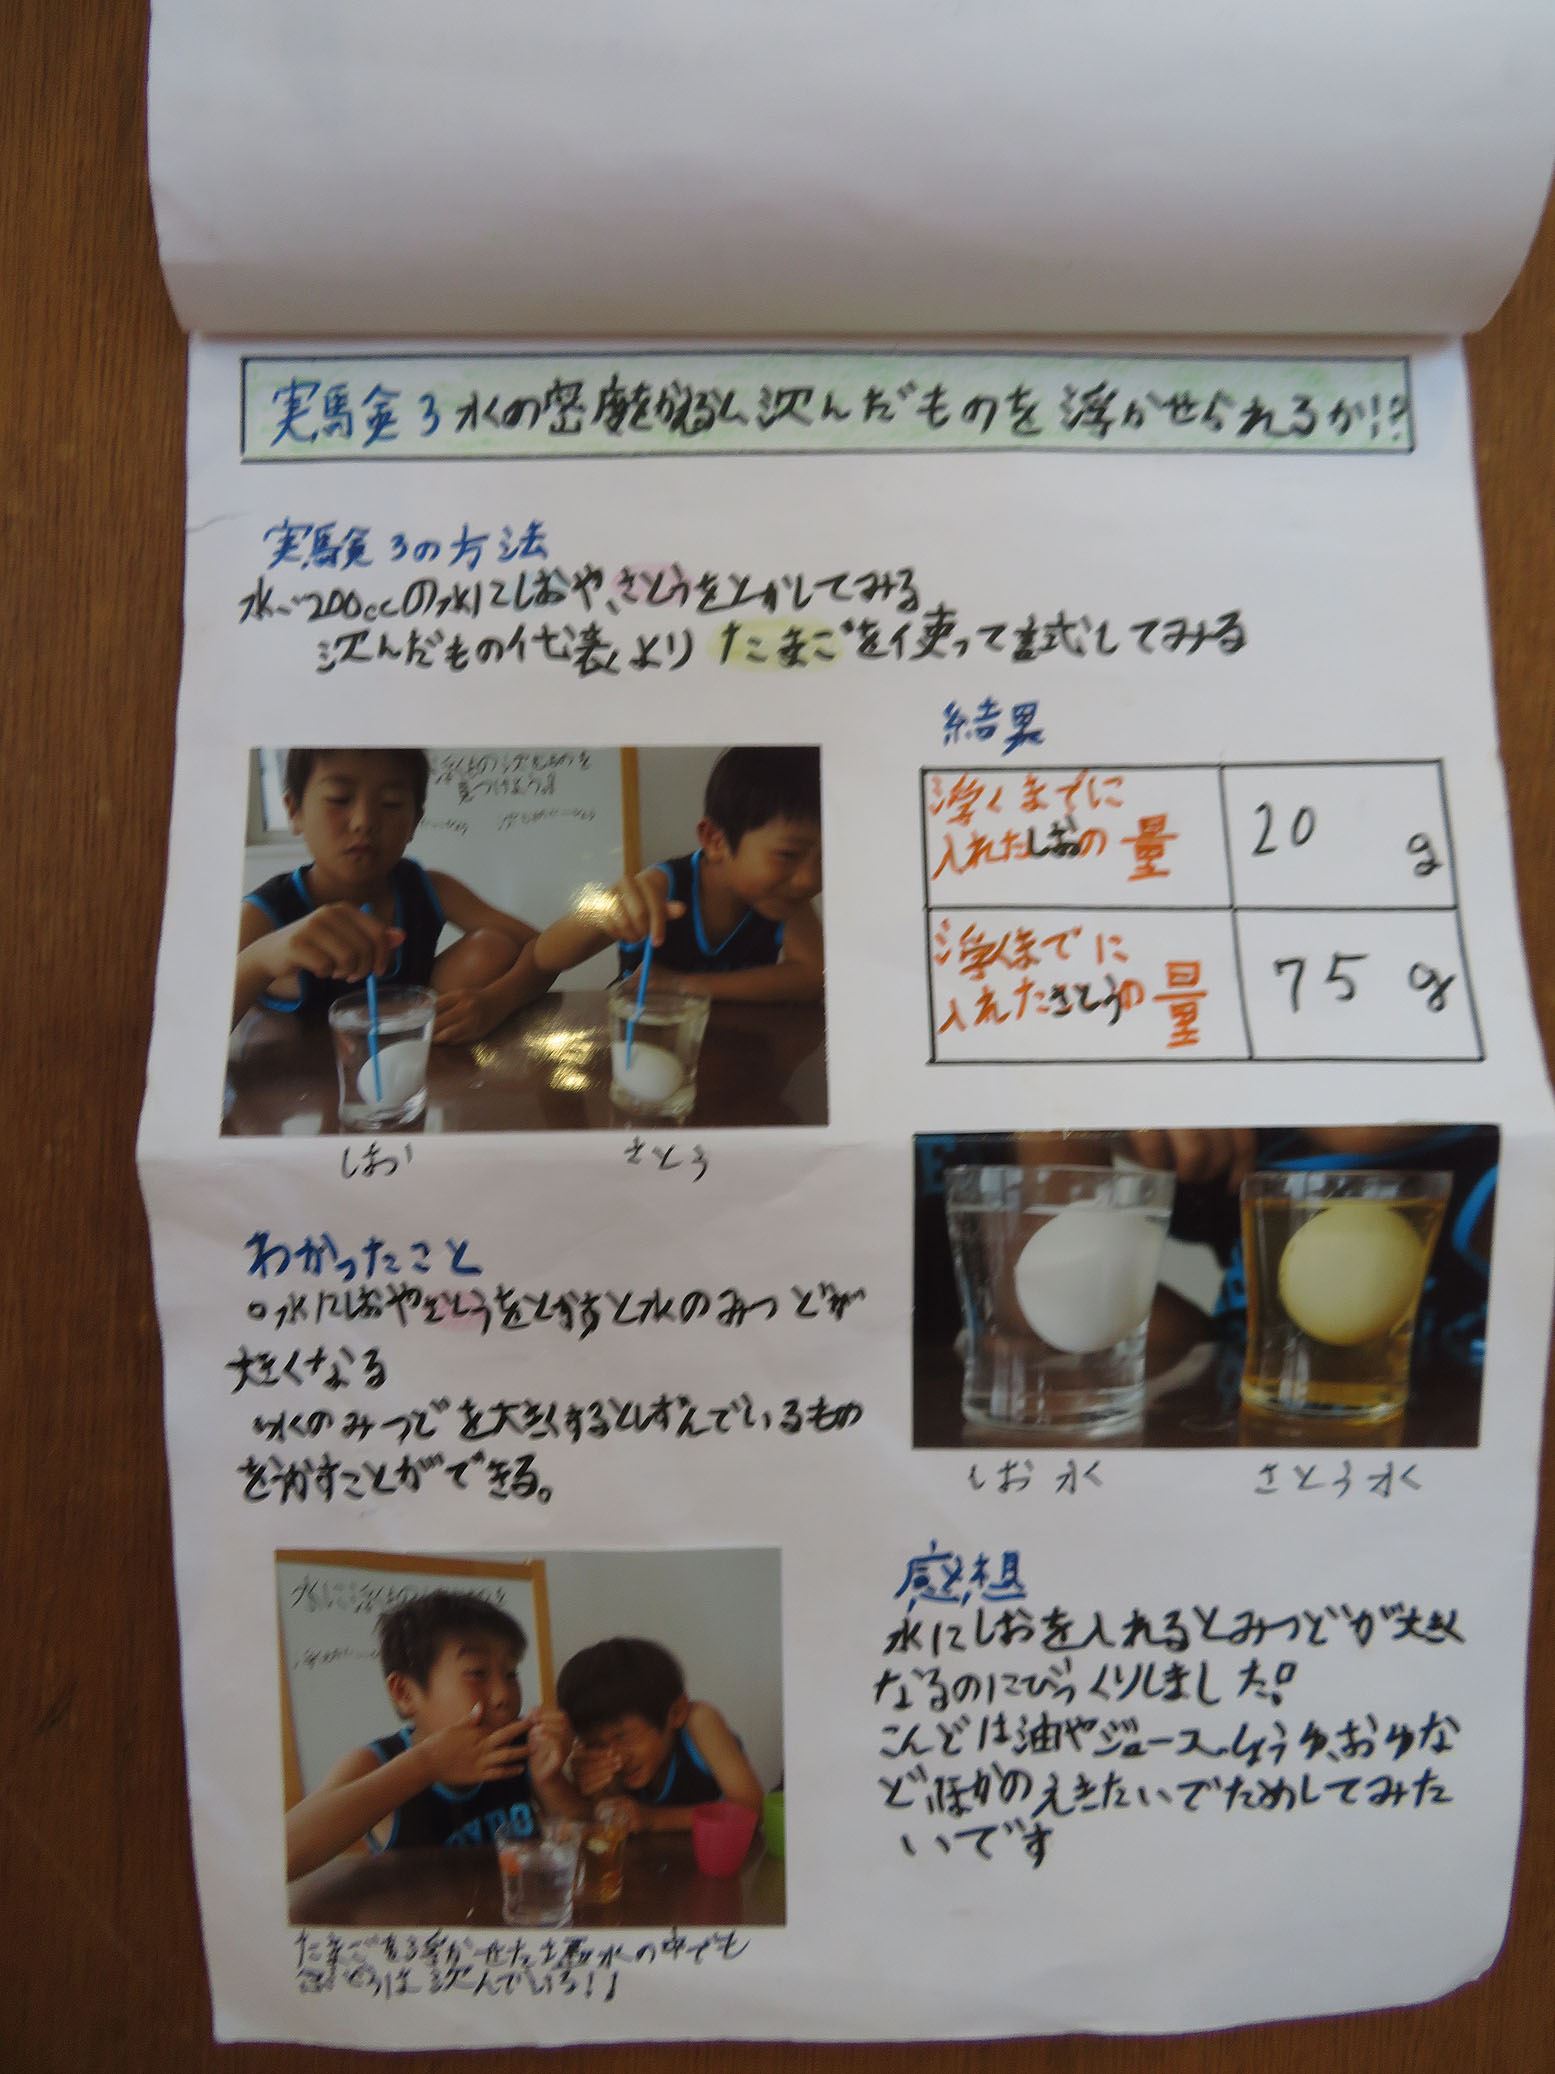 実験3 水の密度をかえると沈んだものを浮かせられるか!?
実験3の方法
水、200ccの水にしおや、さとうをとかしてみる
沈んだもの代表より たまごを使って試してみる
結果
浮くまでに
入れたしおの量 20 g
浮くまでに
入れたさとうの量 75 g
しお
さとう
浮くもの沈むものを
見つけよう!
わかったこと
○水にしおやさとうをとかすと水のみつどが
大きくなる
水のみつどを大きくするとしずんでいるもの
をうかすことができる。
しお水
さとう水
感想
水にしおを入れるとみつどが大きく
なるのにびっくりしました!
こんどは油やジュース、しょうゆ、おゆな
どほかのえきたいでためしてみた
いです
たまごを浮かせた塩水の中でも
は沈んでいる!!